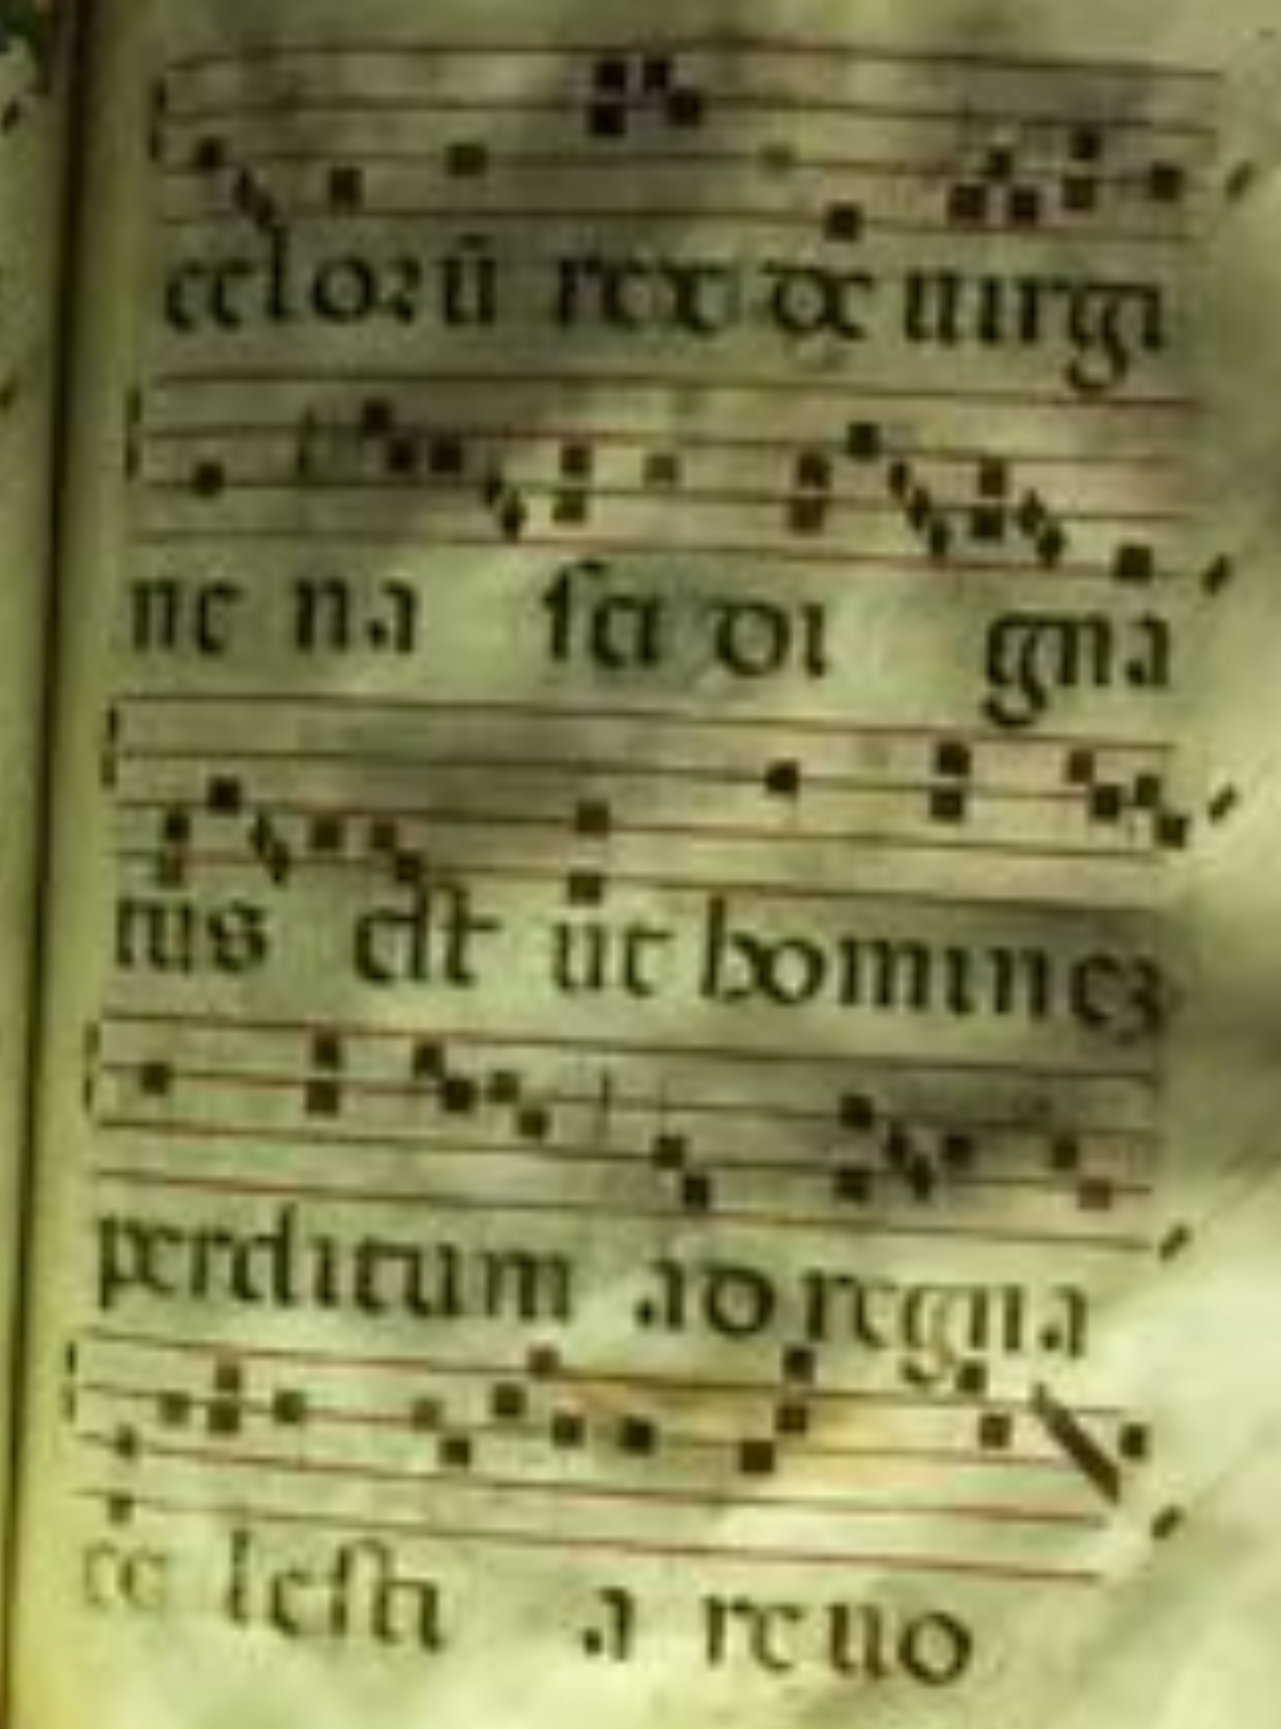 celorū rex de uirgi
ne na sci di gna
tus est ut hominez
perditum ad regna
ce lesti a reuo